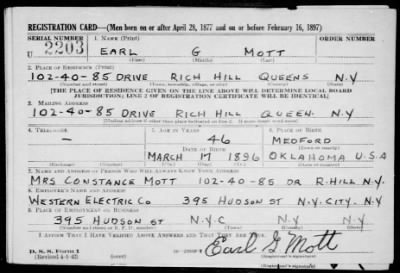 REGISTRATION CARD—(Men born on or after April 28, 1877 and on or before February 16, 1897)
SERIAL NUMBER 1. NAME (Print) ORDER NUMBER
U 2203 EARL G MOTT
(First) (Middle) (Last)
2. PLACE OF RESIDENCE (Print)
102-40-85 DRIVE RICH HILL QUEENS N.Y
(Number and street) (Town, township, village, or city) (County) (State)
[THE PLACE OF RESIDENCE GIVEN ON THE LINE ABOVE WILL DETERMINE LOCAL BOARD
JURISDICTION; LINE 2 OF REGISTRATION CERTIFICATE WILL BE IDENTICAL]
3. MAILING ADDRESS
102-40-85 DRIVE RICH HILL QUEEN. N.Y.
[Mailing address if other than place indicated on line 2. If same insert word same]
4. TELEPHONE 5. AGE IN YEARS 6. PLACE OF BIRTH
– 46 MEDFORD
DATE OF BIRTH (Town or county)
MARCH 17 1896 OKLAHOMA U.S.A
(Exchange) (Number) (Mo.) (Day) (Yr.) (State or country)
7. NAME AND ADDRESS OF PERSON WHO WILL ALWAYS KNOW YOUR ADDRESS
MRS CONSTANCE MOTT 102-40-85 DR R.HILL N.Y.
8. EMPLOYER'S NAME AND ADDRESS
WESTERN ELECTRIC CO 395 HUDSON ST N.Y. CITY. N.Y
9. PLACE OF EMPLOYMENT OR BUSINESS
395 HUDSON ST N.Y.C N.Y
(Number and street or R. F. D. number) (Town) (County) (State)
I AFFIRM THAT I HAVE VERIFIED ABOVE ANSWERS AND THAT THEY ARE TRUE.
D. S. S. Form 1
(Revised 4-1-42) Earl G Mott